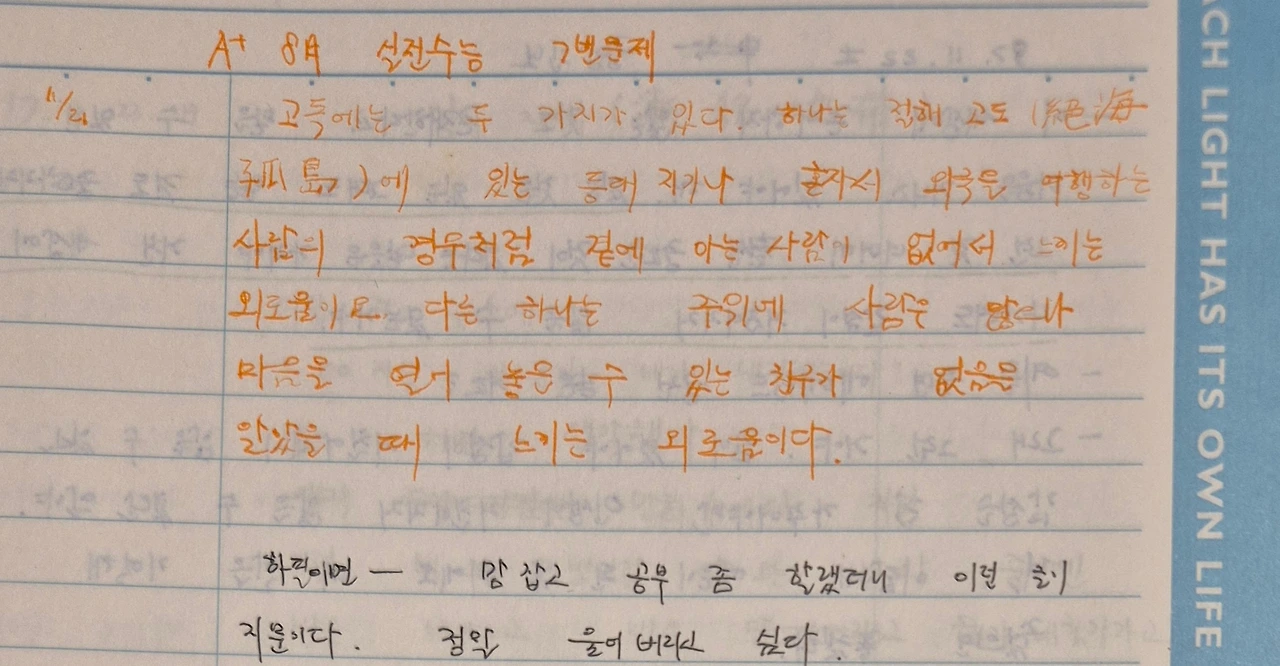 A+ 8A 실전수능 7번문제
11/21
고독에는 두 가지가 있다. 하나는 절해 고도 (絕海
孤島)에 있는 등대 지기나 혼자서 외국을 여행하는
사람의 경우처럼 곁에 아는 사람이 없어서 느끼는
외로움이요. 다른 하나는 주위에 사람은 많으나
마음을 열어 놓을 수 있는 친구가 없음을
알았을 때 느끼는 외로움이다.
하필이면 — 맘 잡고 공부 좀 할랬더니 이런 글이
지문이다. 정말 울어 버리고 싶다.
EACH LIGHT HAS ITS OWN LIFE